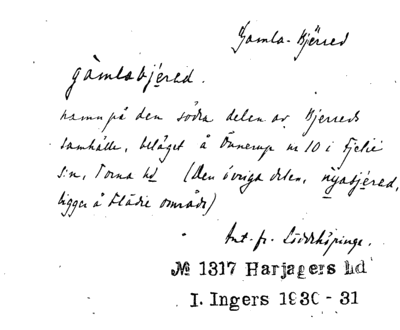 Gamla-Bjerred
gamlabjéred.
namn på den södra delen av Bjerreds
samhälle, beläget å Önnerup nr 10 i Fjelie
s:n, Torna hd (Den övriga delen, nyabjéred,
ligger å Flädie område)
Ant. fr. Löddeköpinge.
№ 1317 Harjagers hd
I. Ingers 1930-31